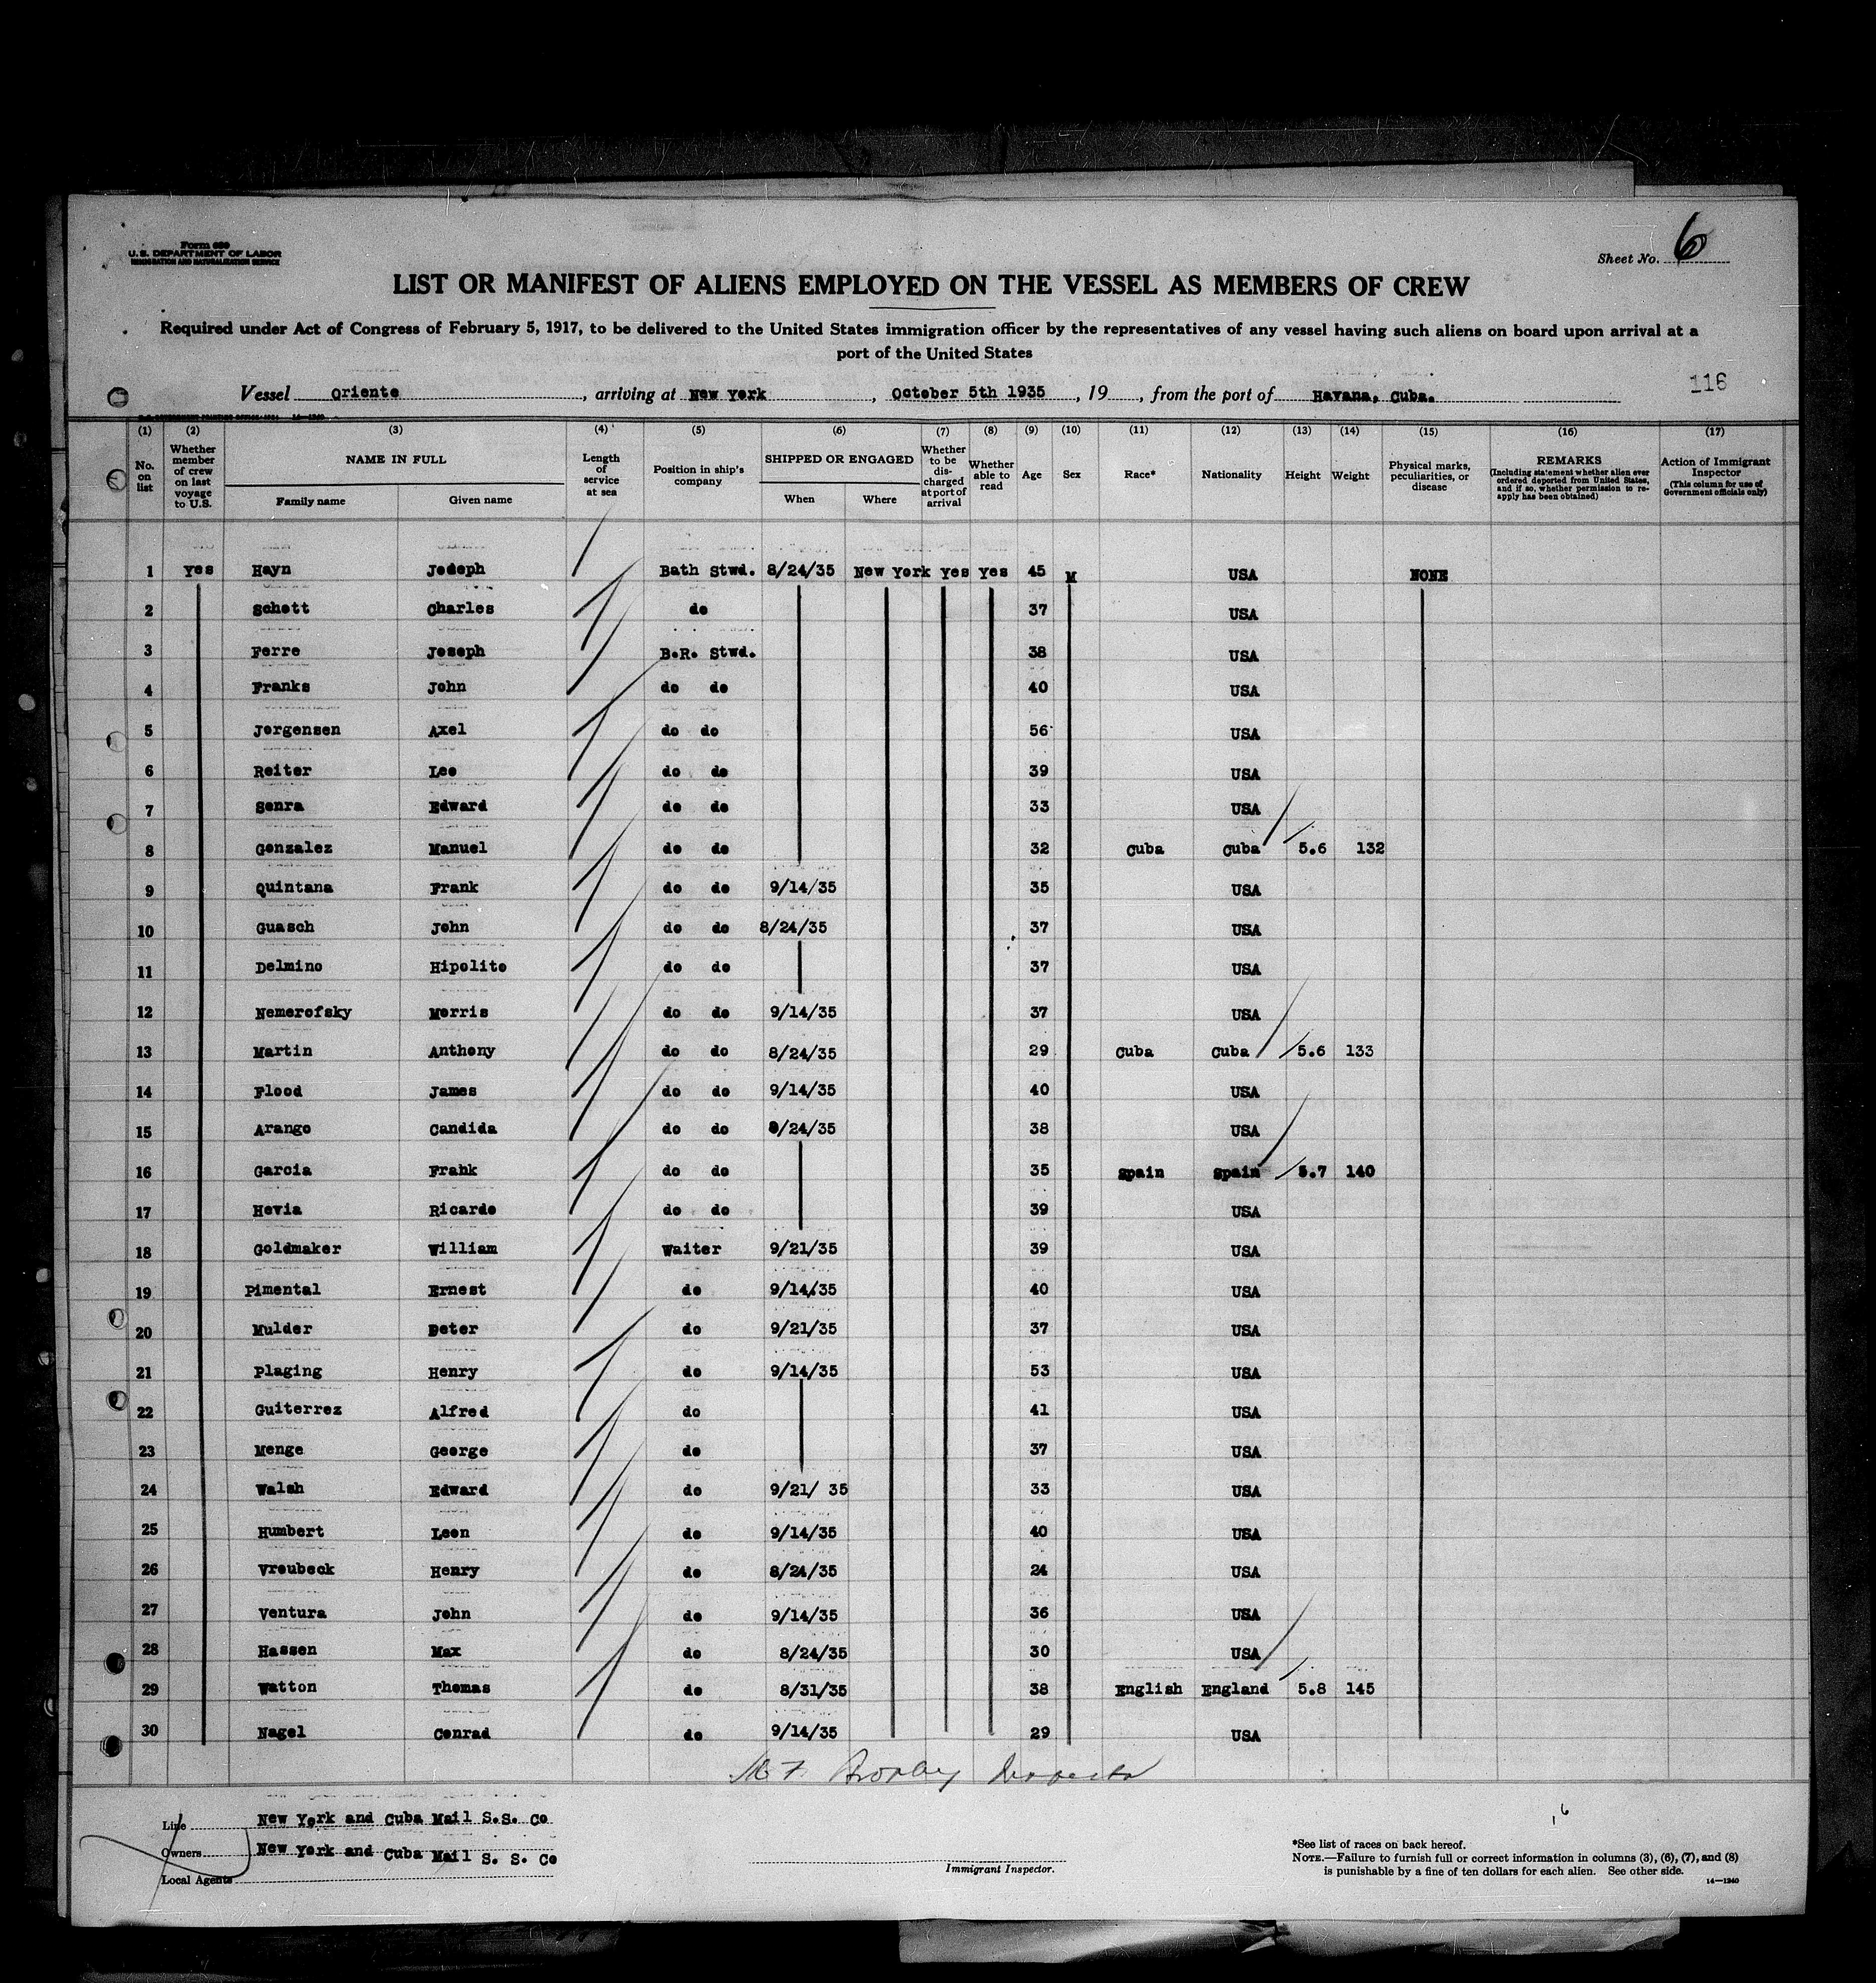 Form 689
U.S. DEPARTMENT OF LABOR
IMMIGRATION AND NATURALIZATION SERVICE
Sheet No. 6
LIST OR MANIFEST OF ALIENS EMPLOYED ON THE VESSEL AS MEMBERS OF CREW
Required under Act of Congress of February 5, 1917, to be delivered to the United States immigration officer by the representatives of any vessel having such aliens on board upon arrival at a
port of the United States
116
Vessel Oriente, arriving at New York, October 5th 1935, 19, from the port of Havana, Cuba.
(1) (2) (3) (4) (5) (6) (7) (8) (9) (10) (11) (12) (13) (14) (15) (16) (17)
No. on list
Whether member of crew on last voyage to U.S.
NAME IN FULL
Family name Given name
Length of service at sea
Position in ship's company
SHIPPED OR ENGAGED
When Where
Whether to be discharged at port of arrival
Whether able to read
Age
Sex
Race*
Nationality
Height
Weight
Physical marks, peculiarities, or disease
REMARKS
(Including statement whether alien ever ordered deported from United States, and if so, whether permission to reapply has been obtained)
Action of Immigrant Inspector
(This column for use of Government officials only)
1 Yes Hayn Jodeph Bath Stwd. 8/24/35 New York Yes Yes 45 M USA NONE
2 Schott Charles do 37 USA
3 Ferre Joseph B.R. Stwd. 38 USA
4 Franks John do do 40 USA
5 Jorgensen Axel do do 56 USA
6 Reiter Leo do do 39 USA
7 Senra Edward do do 33 USA
8 Gonzalez Manuel do do 32 Cuba Cuba 5.6 132
9 Quintana Frank do do 9/14/35 35 USA
10 Guasch John do do 8/24/35 37 USA
11 Delmino Hipolito do do 37 USA
12 Nemerofsky Morris do do 9/14/35 37 USA
13 Martin Anthony do do 8/24/35 29 Cuba Cuba 5.6 133
14 Flood James do do 9/14/35 40 USA
15 Arango Candida do do 8/24/35 38 USA
16 Garcia Frahk do do 35 Spain Spain 5.7 140
17 Hevia Ricardo do do 39 USA
18 Goldmaker William Waiter 9/21/35 39 USA
19 Pimental Ernest do 9/14/35 40 USA
20 Mulder Peter do 9/21/35 37 USA
21 Plaging Henry do 9/14/35 53 USA
22 Guiterrez Alfred do 41 USA
23 Menge George do 37 USA
24 Walsh Edward do 9/21/ 35 33 USA
25 Humbert Leon do 9/14/35 40 USA
26 Vroubeck Henry do 8/24/35 24 USA
27 Ventura John do 9/14/35 36 USA
28 Hassen Max do 8/24/35 30 USA
29 Watton Thomas do 8/31/35 38 English England 5.8 145
30 Nagel Conrad do 9/14/35 29 USA
Line New York and Cuba Mail S.S. Co
Owners New York and Cuba Mail S. S. Co
Local Agents
Immigrant Inspector.
*See list of races on back hereof.
NOTE.—Failure to furnish full or correct information in columns (3), (6), (7), and (8)
is punishable by a fine of ten dollars for each alien. See other side.
14—1240